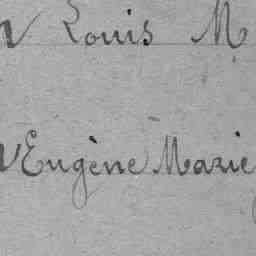 Louis M
Eugène Marie